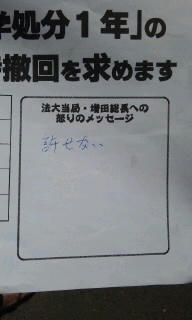 学処分１年」の
撤回を求めます
法大当局・増田総長への
怒りのメッセージ
許せない